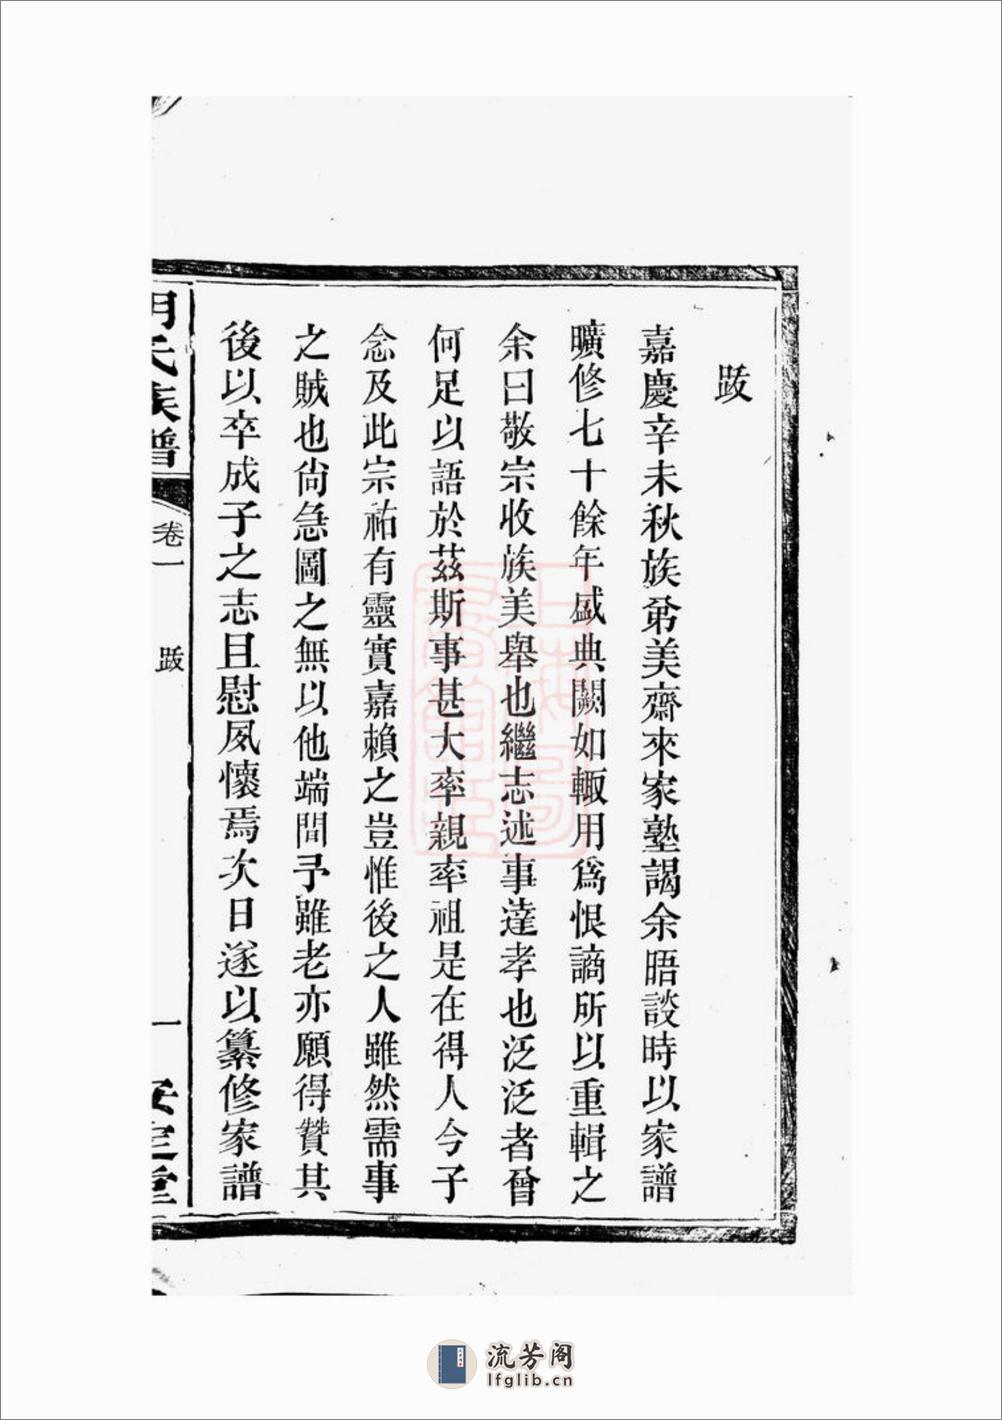 跋
嘉慶辛未秋族弟美齋來家塾謁余晤談時以家譜
曠修七十餘年盛典闕如輙用爲恨謫所以重輯之
余曰敬宗收族美舉也繼志述事達孝也泛泛者曾
何足以語於茲斯事甚大率親率祖是在得人今子
念及此宗祐有靈實嘉賴之豈惟後之人雖然需事
之賊也尙急圖之無以他端間予雖老亦願得贊其
後以卒成子之志且慰夙懷焉次日遂以纂修家譜
氏族譜
卷一
跋
一
安定堂
上海圖書館藏
流芳阁
lfglib.cn